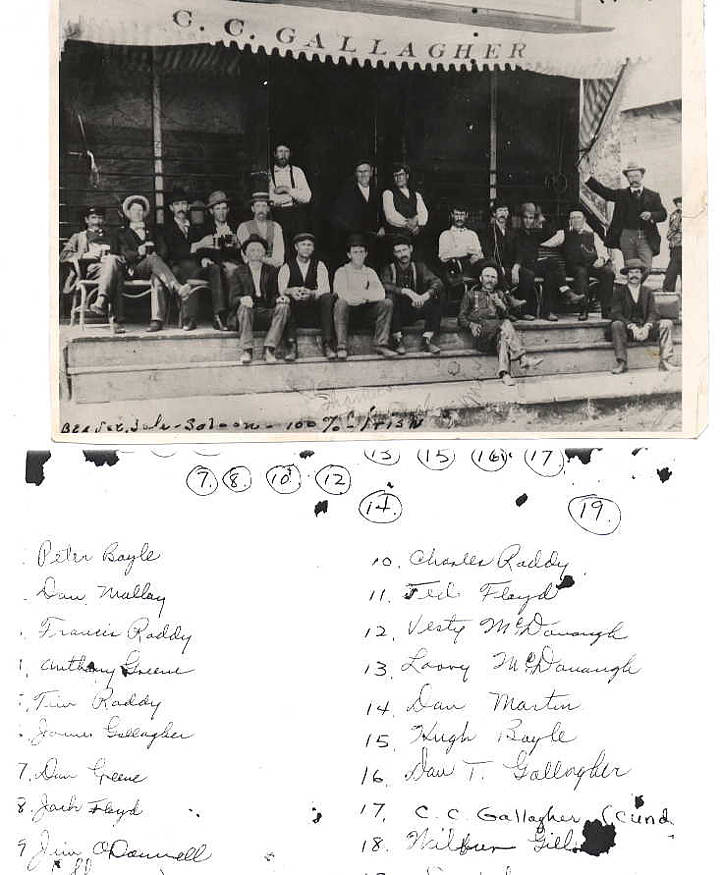 C. C. GALLAGHER
Saloon - 100% - IRISH
13 15 16 17
7. 8. 10 12
14. 19.
Peter Boyle
Dan Mallay
Francis Roddy
Anthony Greene
Tim Roddy
James Gallagher
7. Dan Greene
8. Jack Floyd
9 Jim O'Donnell
10. Charles Roddy
11. Ted Floyd
12. Vesty McDonaugh
13. Larry McDonaugh
14. Dan Martin
15. Hugh Boyle
16. Dan T. Gallagher
17. C. C. Gallagher (cund
18. Wilbur Gill